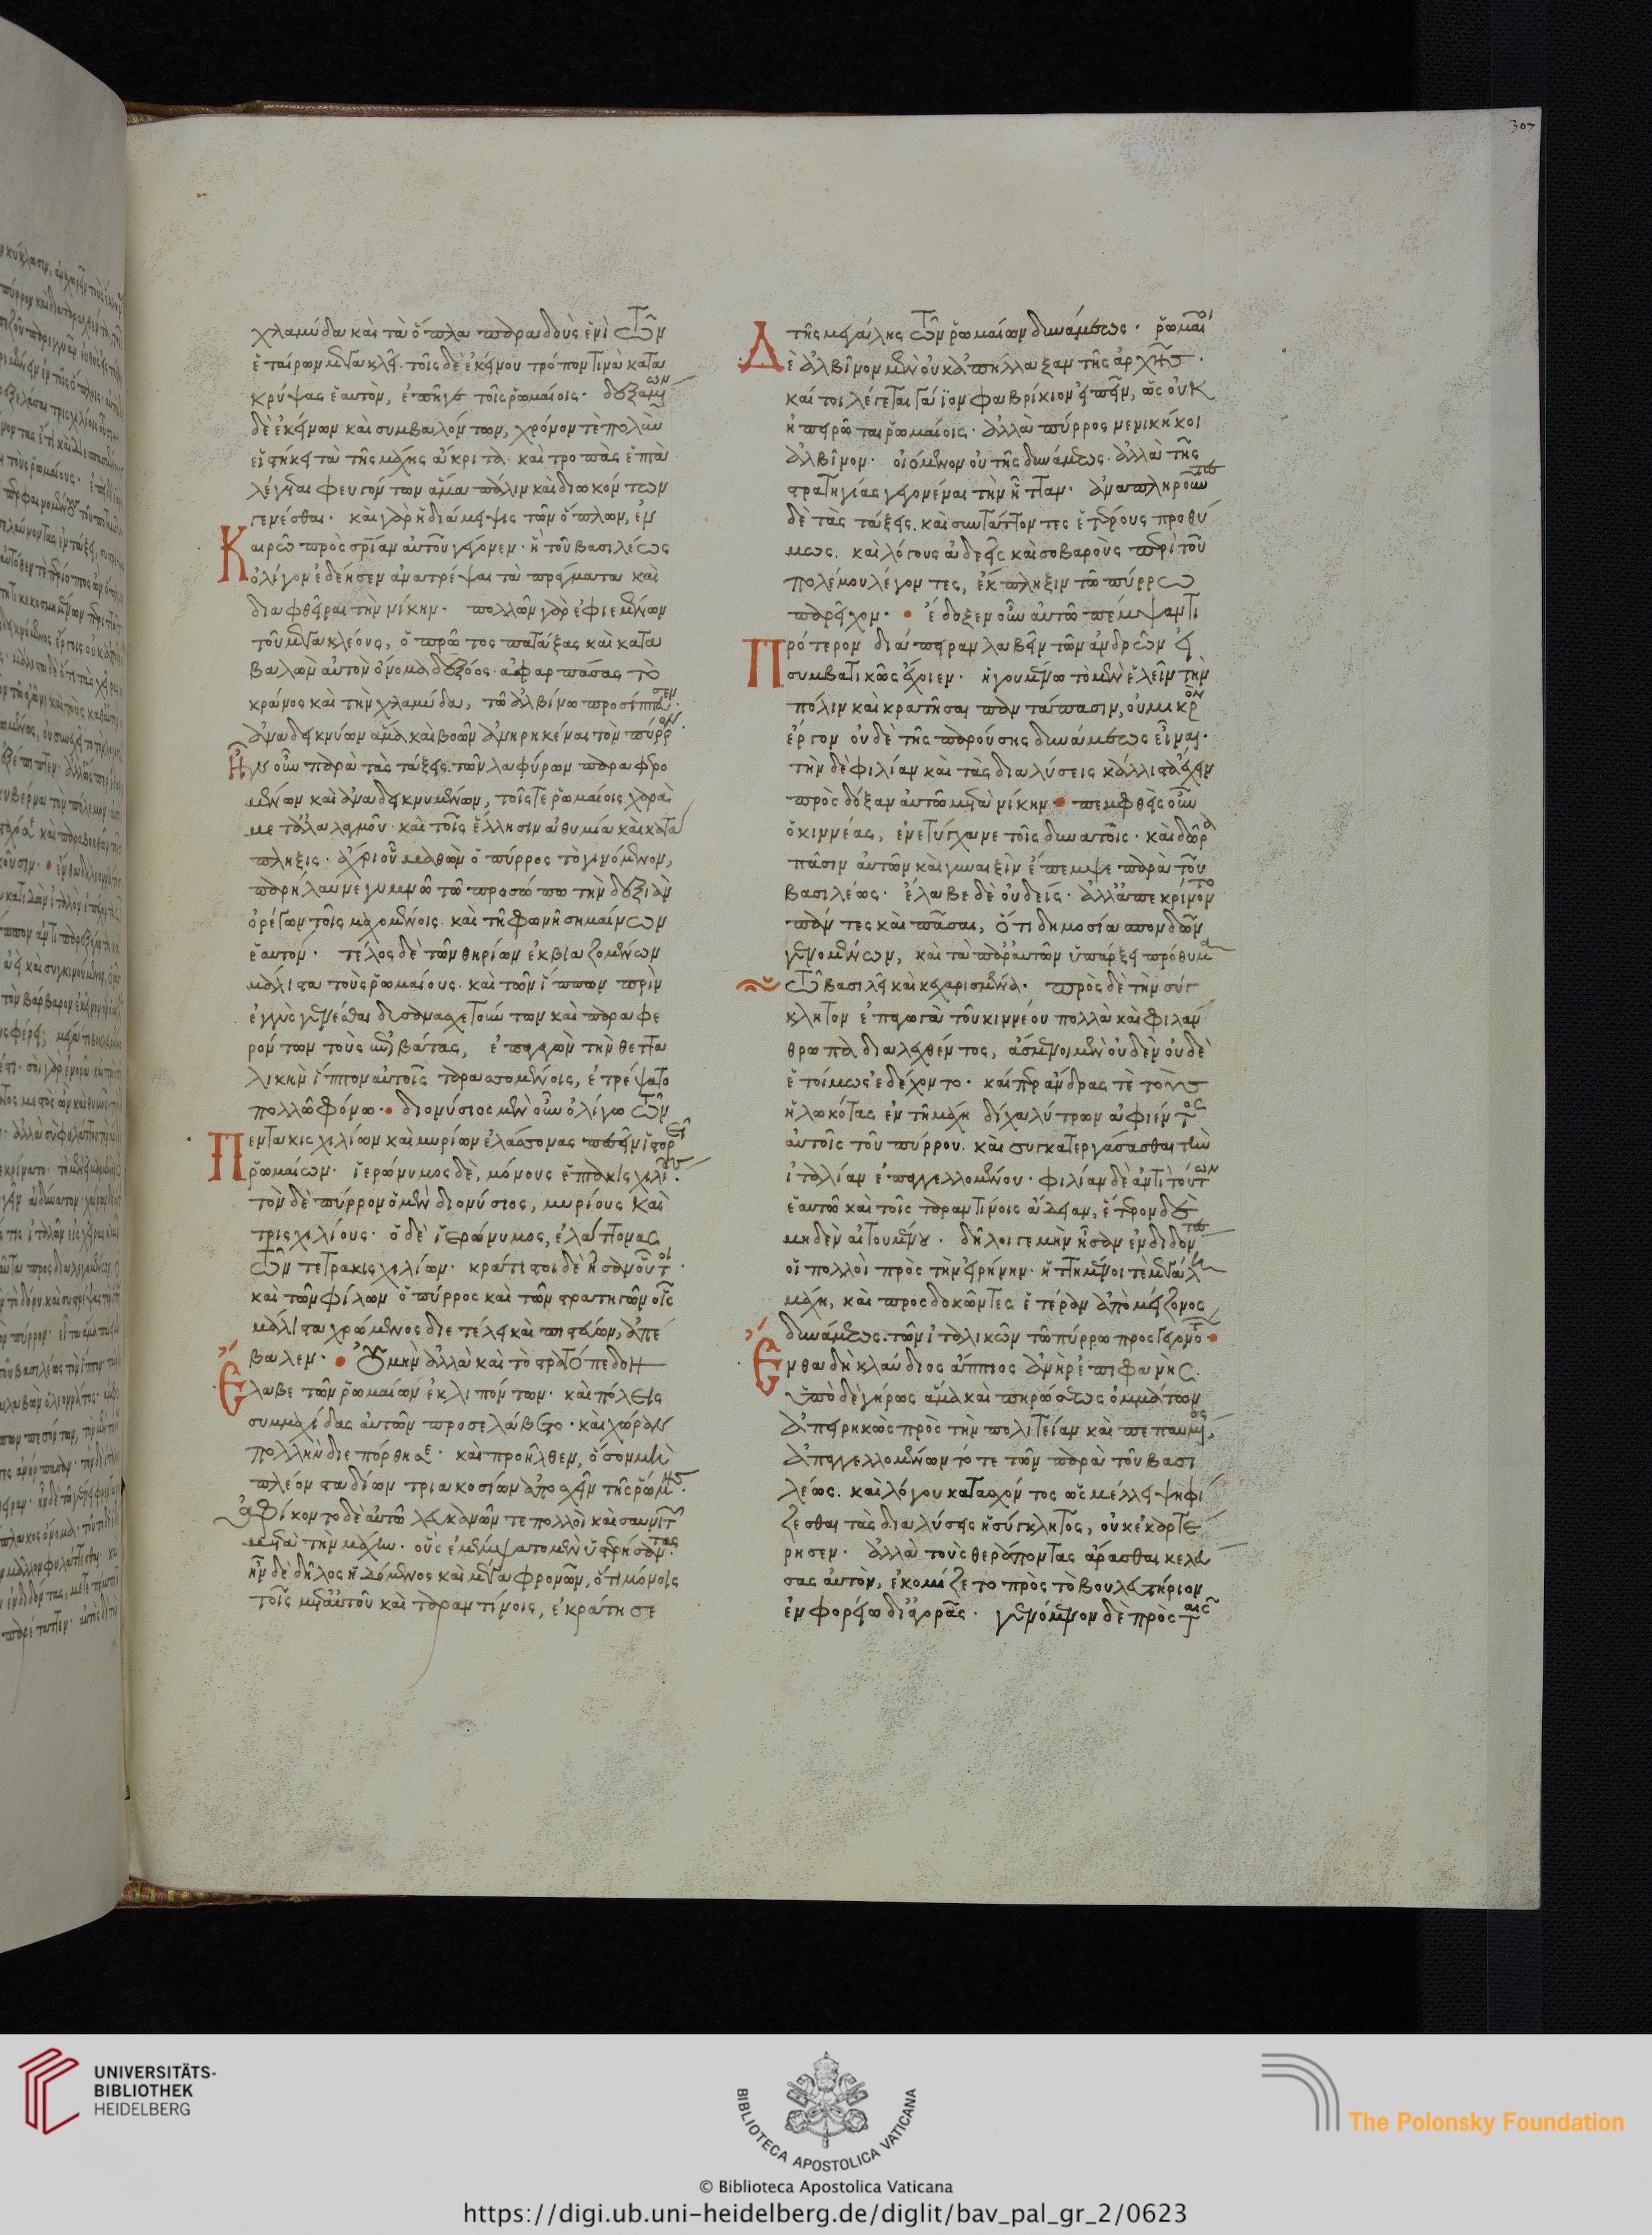 χλαμύδα καὶ τὰ ὅπλα παραδοὺς ἑνὶ τῶν
ἑταίρων μεγακλεῖ. τοῖς δὲ ἐκείνου τρόπον τινὰ κατα
κρύψας ἑαυτὸν, ἐπῆγε τοῖς ῥωμαίοις. δεξαμένων
δὲ ἐκείνων καὶ συμβαλόντων, χρόνον τὲ πολὺν
εἱστήκει τὰ τῆς μάχης ἄκριτα. καὶ τροπὰς ἑπτὰ
λέγεται φευγόντων ἅμα πάλιν καὶ διωκόντων
γενέσθαι. καὶ γὰρ ἡ διάμειψις τῶν ὅπλων, ἐν
Καιρῷ πρὸς σρίαν αὐτοῦ γέγονεν. ἡ τοῦ βασιλέως
ὀλίγον ἐδέησεν ἀνατρέψαι τὰ πράγματα καὶ
διαφθεῖραι τὴν νίκην. πολλῶν γὰρ ἐφιεμένων
τοῦ μεγακλέους, ὁ πρῶτος πατάξας καὶ κατα
βαλὼν αὐτὸν ὄνομα δεξόος. ἀφαρπάσας τὸ
κράνος καὶ τὴν χλαμύδα, τῶ ἀλβίνω προσίππασεν.
ἀναδεικνύων ἅμα καὶ βοῶν ἀνηρηκέναι τὸν πύρρον.
Ἦν οὖν παρὰ τὰς τάξεις τῶν λαφύρων παραφερο
μένων καὶ ἀναδεικνυμένων, τοῖς τε ῥωμαίοις χαρὰ
μετ' ἀλαλαγμοῦ καὶ τοῖς ἕλλησιν ἀθυμία καὶ κατά
πληξις. ἄχρι οὗ μαθὼν ὁ πύρρος τὸ γινόμενον,
παρήλαυνε γυμνῶ τῶ προσώπω τὴν δεξιὰν
ὀρέγων τοῖς μαχομένοις. καὶ τῆ φωνῆ σημαίνων
ἑαυτόν. τέλος δὲ τῶν θηρίων ἐκβιαζομένων
μάλιστα τοὺς ῥωμαίους. καὶ τῶν ἵππων πρὶν
ἐγγὺς γενέσθαι δυσανασχετούντων καὶ παραφε
ρόντων τοὺς ἀναβάτας, ἐπαγαγὼν τὴν θεττα
λικὴν ἵππον αὐτοῖς ταρασσομένοις, ἐτρέψατο
πολλῶ φόνω. διονύσιος μὲν οὖν ὀλίγω τῶν
Πεντακισχιλίων καὶ μυρίων ἐλάσσονας πεσεῖν ἱστορεῖ
ῥωμαίων. ἱερώνυμος δὲ, μόνους ἑπτακισχιλίους.
τὸν δὲ πύρρον ὁ μὲν διονύσιος, μυρίους καὶ
τρισχιλίους. ὁ δὲ ἱερώνυμος, ἐλάττονας
τῶν τετρακισχιλίων. κράτιστοι δὲ ἦσαν οὗτοι.
καὶ τῶν φίλων ὁ πύρρος καὶ τῶν στρατηγῶν οἷς
μάλιστα χρώμενος διετέλει καὶ πιστεύων, ἀπέ
βαλεν. οὐ μὴν ἀλλὰ καὶ τὸ στρατόπεδον
Ἔλαβε τῶν ῥωμαίων ἐκλιπόντων. καὶ πόλεις
συμμαχίδας αὐτῶν προσελάβετο. καὶ χώραν
πολλὴν διεπόρθησε. καὶ προῆλθεν, ὅσον μὴ
πλέον σταδίων τριακοσίων ἀποσχεῖν τῆς ῥώμης.
ἀφίκοντο δὲ αὐτῶ λευκανῶν τε πολλοὶ καὶ σαυνῖται
μετὰ τὴν μάχην. οὓς ἐμέμψατο μὲν ὑστερήσαντας.
ἦν δὲ δῆλος ἡδόμενος καὶ μέγα φρονῶν, ὅτι μόνοις
τοῖς μεθ' αὑτοῦ καὶ ταραντίνοις, ἐκράτησε
Δ τῆς μεγάλης τῶν ῥωμαίων δυνάμεως. ῥωμαῖοι
ὲ ἀλβῖνον μὲν οὐκ ἀπήλλαξαν τῆς ἀρχῆς.
καί τοι λέγεται γάϊον φαβρίκιον εἰπεῖν, ὡς οὐκ
ἠπειρῶται ῥωμαίοις. ἀλλὰ πύρρος νενικήκοι
ἀλβῖνον. οἰόμενον οὐ τῆς δυνάμεως. ἀλλὰ τῆς
στρατηγίας γεγονέναι τὴν ἧτταν. ἀναπληροῦντες
δὲ τὰς τάξεις. καὶ συντάττοντες ἑτέρους προθύ
μως. καὶ λόγους ἀδεεῖς καὶ σοβαροὺς περὶ τοῦ
πολέμου λέγοντες, ἔκπληξιν τῶ πύρρω
παρεῖχον. ἔδοξεν οὖν αὐτῶ πέμψαντι
Πρότερον διάπειραν λαβεῖν τῶν ἀνδρῶν εἰ
συμβατικῶς ἔχοιεν. ἡγουμένω τὸ μὲν ἑλεῖν τὴν
πόλιν καὶ κρατῆσαι παντάπασιν, οὐ μικρὸν
ἔργον οὐδὲ τῆς παρούσης δυνάμεως εἶναι.
τὴν δὲ φιλίαν καὶ τὰς διαλύσεις κάλλιστα ἔχειν
πρὸς δόξαν αὐτῶ μετὰ νίκην. πεμφθεὶς οὖν
ὁ κιννέας, ἐνετύγχανε τοῖς δυνατοῖς. καὶ δῶρα
πᾶσιν αὐτῶν καὶ γυναιξὶν ἔπεμψε παρὰ τοῦ
βασιλέως. ἔλαβε δὲ οὐδείς. ἀλλ' ἀπεκρίναντο
πάντες καὶ πᾶσαι, ὅτι δημοσία σπονδῶν
γενομένων, καὶ τὰ παρ' αὐτῶν ὑπάρξει πρόθυμα
τῶ βασιλεῖ καὶ κεχαρισμένα. πρὸς δὲ τὴν σύγ
κλητον ἐπαγωγὰ τοῦ κιννέου πολλὰ καὶ φιλάν
θρωπα διαλεχθέντος, ἄσμενοι μὲν οὐδὲν οὐδὲ
ἑτοίμως ἐδέχοντο. καίπερ ἄνδρας τὲ τοὺς
ἡλωκότας ἐν τῆ μάχη δίχα λύτρων ἀφιέντος
αὐτοῖς τοῦ πύρρου. καὶ συγκατεργάσασθαι τὴν
ἰταλίαν ἐπαγγελλομένου. φιλίαν δὲ ἀντὶ τούτων
ἑαυτῶ καὶ τοῖς ταραντίνοις ἄδειαν, ἕτερον δὲ
μηδὲν αἰτουμένου. δῆλοι γε μὴν ἦσαν ἐνδιδόντες
οἱ πολλοὶ πρὸς τὴν εἰρήνην. ἡττημένοι τὲ μεγάλη
μάχη, καὶ προσδοκῶντες ἑτέραν ἀπὸ μείζονος
δυνάμεως. τῶν ἰταλικῶν τῶ πύρρω προσγεγονότων
Ἔνθα δὴ κλαύδιος ἄππιος ἀνὴρ ἐπιφανὴς.
ὑπὸ δὲ γήρως ἅμα καὶ πηρώσεως ὀμμάτων
ἀπειρηκὼς πρὸς τὴν πολιτείαν καὶ πεπαυμένος,
ἀπαγγελλομένων τότε τῶν παρὰ τοῦ βασι
λέως. καὶ λόγου κατασχόντος ὡς μέλλει ψηφί
ζεσθαι τὰς διαλύσεις ἡ σύγκλητος, οὐκ ἐκαρτέ
ρησεν. ἀλλὰ τοὺς θεράποντας ἄρασθαι κελεύ
σας αὐτὸν, ἐκομίζετο πρὸς τὸ βουλευτήριον
ἐν φορείω δι' ἀγορᾶς. γενόμενον δὲ πρὸς ταῖς
307
UNIVERSITÄTS-
BIBLIOTHEK
HEIDELBERG
BIBLIOTECA APOSTOLICA VATICANA
The Polonsky Foundation
© Biblioteca Apostolica Vaticana
https://digi.ub.uni-heidelberg.de/diglit/bav_pal_gr_2/0623